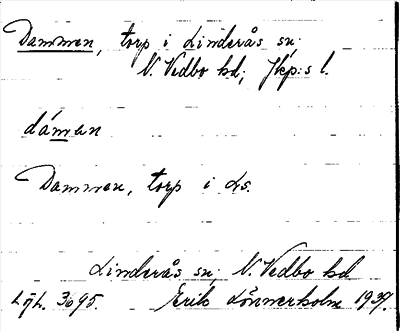 Dammen, torp i Linderås sn;
N. Vedbo hd; Jkp:s l.
dámen
Dammen, torp i Ls.
Linderås sn; N. Vedbo hd
Erik Lönnerholm 1937.